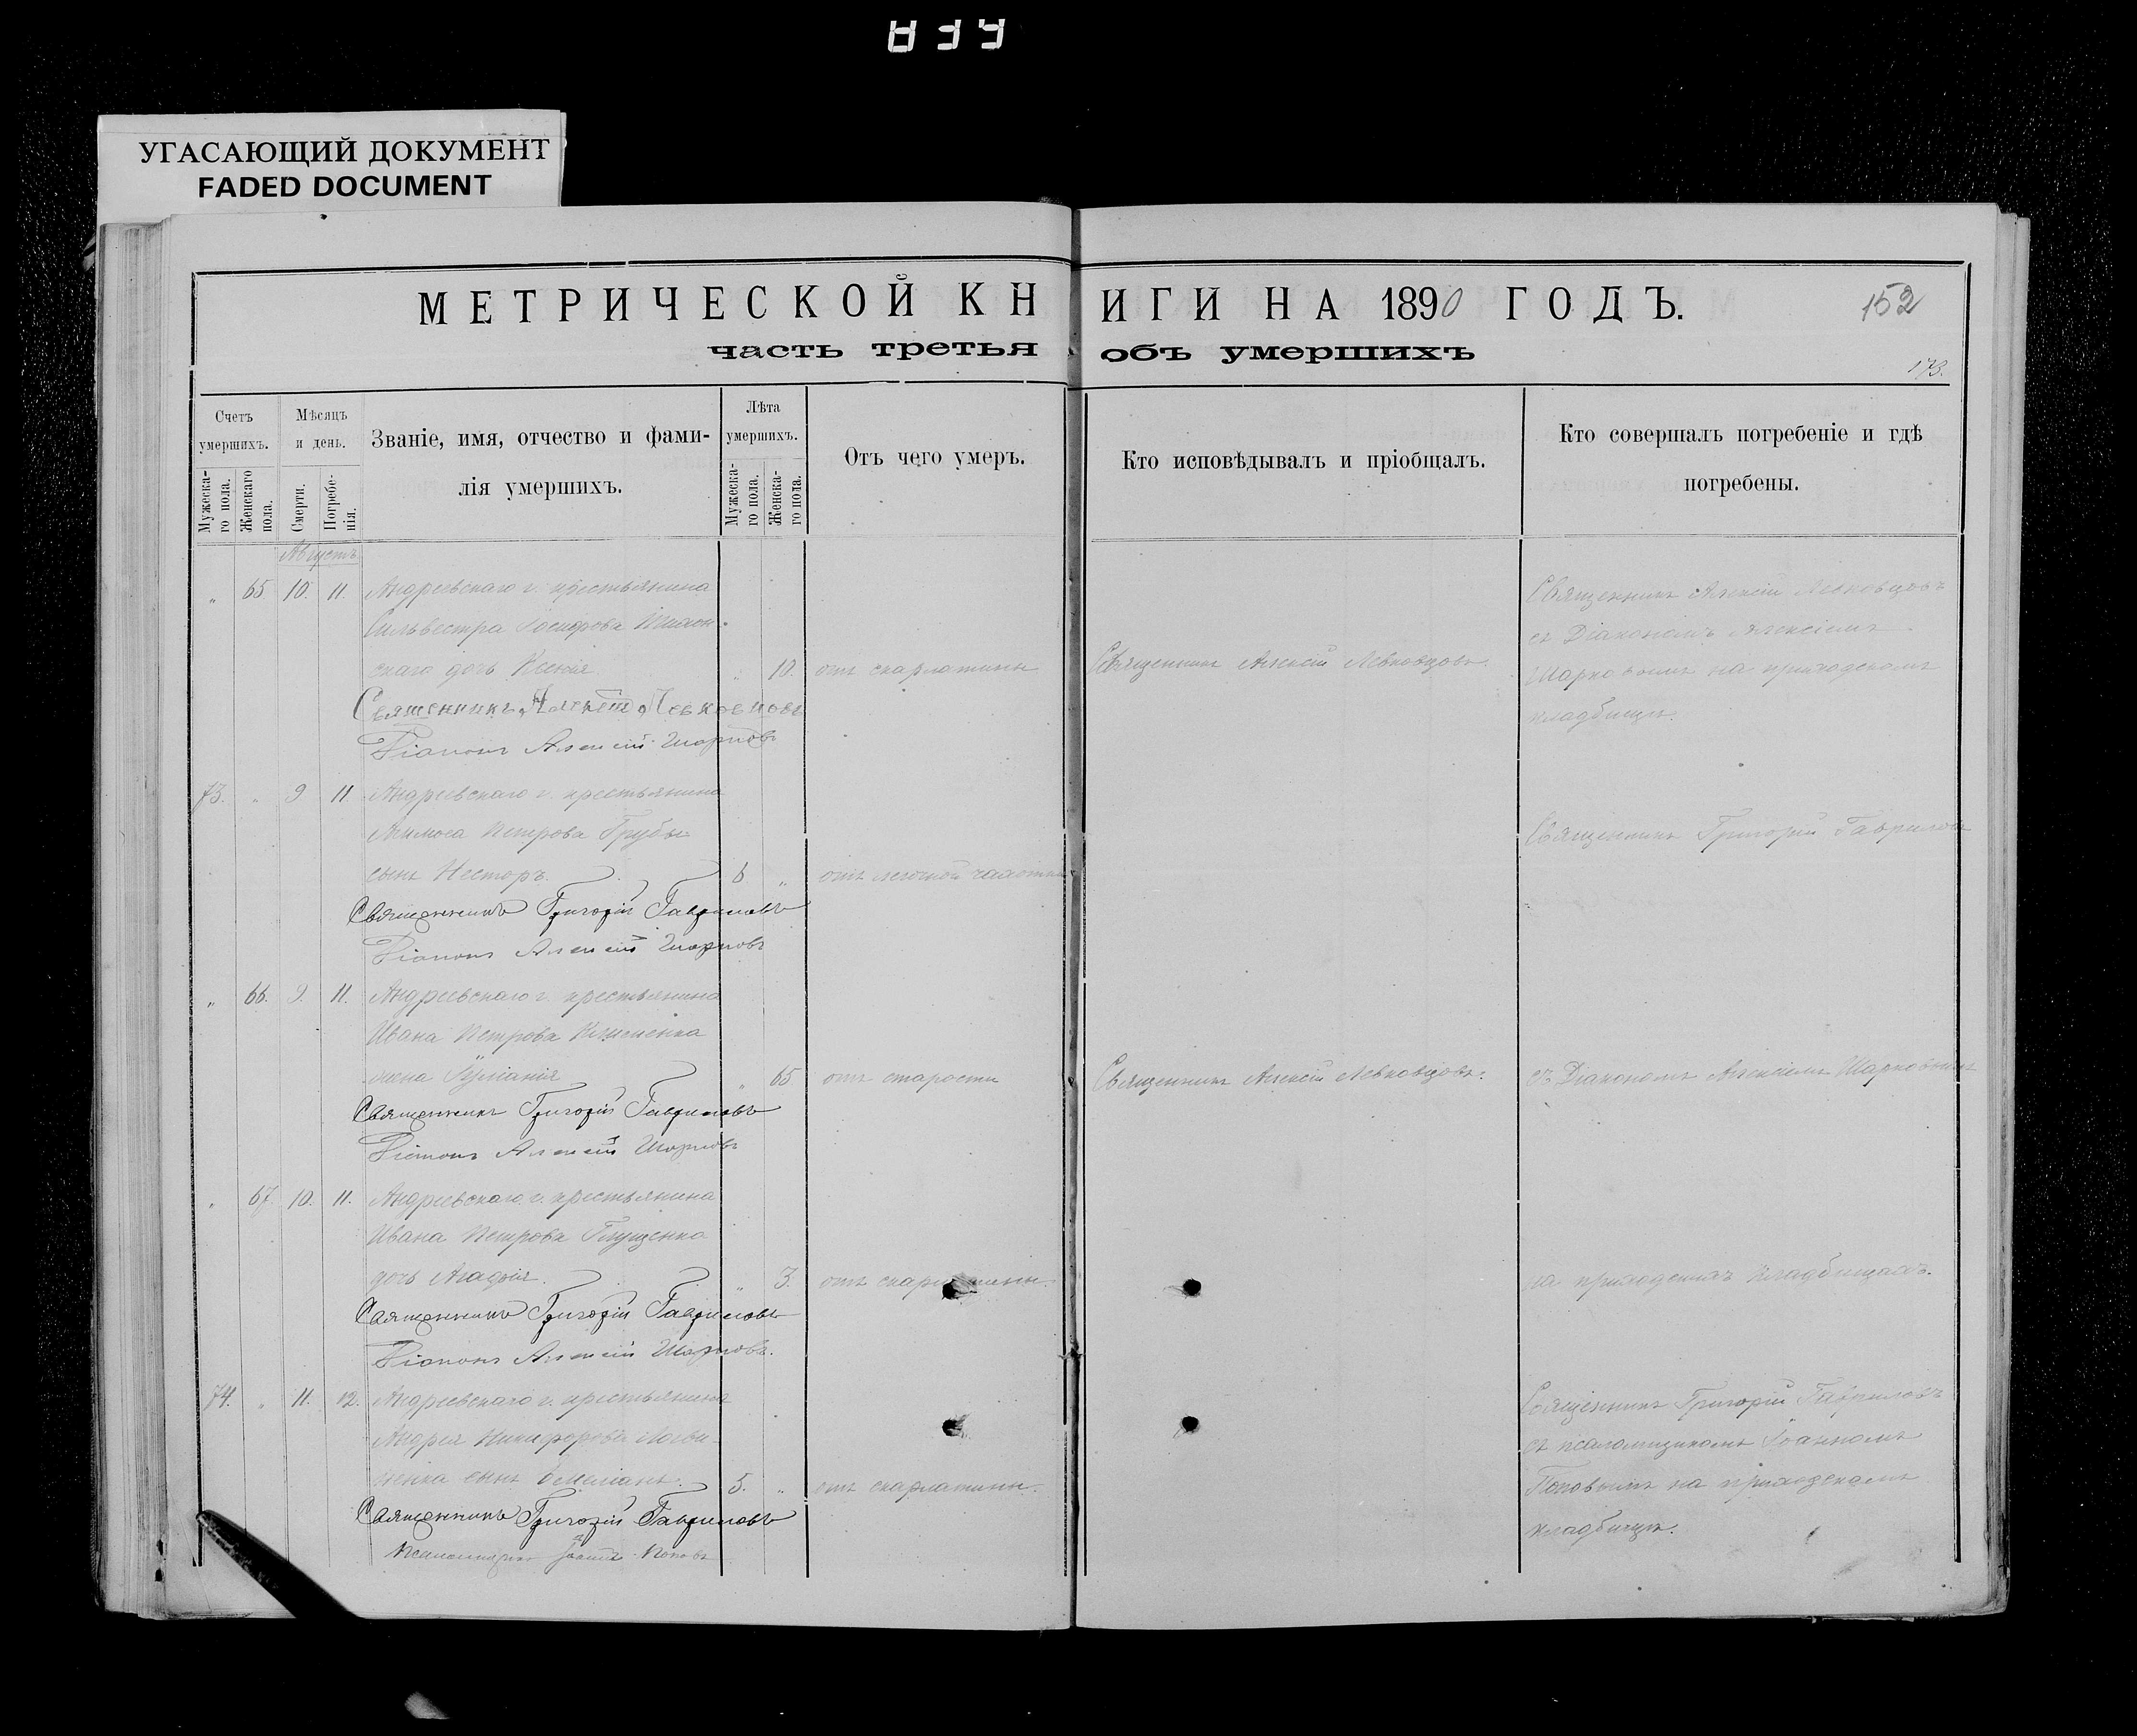 УГАСАЮЩИЙ ДОКУМЕНТ
FADED DOCUMENT
МЕТРИЧЕСКОЙ КНИГИ НА 1890 ГОДЪ.
152
часть третья объ умершихъ
173.
Счетъ умершихъ.
Мужескаго пола.
Женскаго пола.
Мѣсяцъ и день.
Смерти.
Погребенія.
Званіе, имя, отчество и фамилія умершихъ.
Лѣта умершихъ.
Мужескаго пола.
Женскаго пола.
Отъ чего умеръ.
Кто исповѣдывалъ и пріобщалъ.
Кто совершалъ погребеніе и гдѣ погребены.
Августъ
„ 65 10. 11. Андреевскаго г. крестьянина
Сильвестра Іосифова
скаго дочь Ксенія „ 10. отъ скарлатины
Священникъ Алексій Левковцовъ.
Священникъ Алексій Левковцовъ
съ Діакономъ Алексіемъ
Шарковымъ на приходскомъ
кладбищѣ.
Священникъ Алексій Левковцовъ
Діаконъ Алексій Шарковъ
73. „ 9 11 Андреевскаго г. крестьянина
Петрова Грубы
сынъ Несторъ. 6 „ отъ легочной чахотки
Священникъ Григорій Гавриловъ
Священникъ Григорій Гавриловъ
Діаконъ Алексій Шарковъ
„ 66. 9. 11. Андреевскаго г. крестьянина
Ивана Петрова
жена Іуліанія „ 65 отъ старости
Священникъ Алексій Левковцовъ.
съ Діакономъ Алексіемъ Шарковымъ
Священникъ Григорій Гавриловъ
Діаконъ Алексій Шарковъ
„ 67. 10. 11. Андреевскаго г. крестьянина
Ивана Петрова Глущенка
дочь Агафія. „ 3. отъ скарлатины.
на приходскихъ кладбищахъ.
Священникъ Григорій Гавриловъ
Діаконъ Алексій Шарковъ.
74. „ 11. 12. Андреевскаго г. крестьянина
Андрея Никифорова Логви-
ненка сынъ Емеліанъ. 5. „ отъ скарлатины.
Священникъ Григорій Гавриловъ
съ псаломщикомъ Іоанномъ
Поповымъ на приходскомъ
кладбищѣ.
Священникъ Григорій Гавриловъ
Псаломщикъ Іоаннъ Поповъ